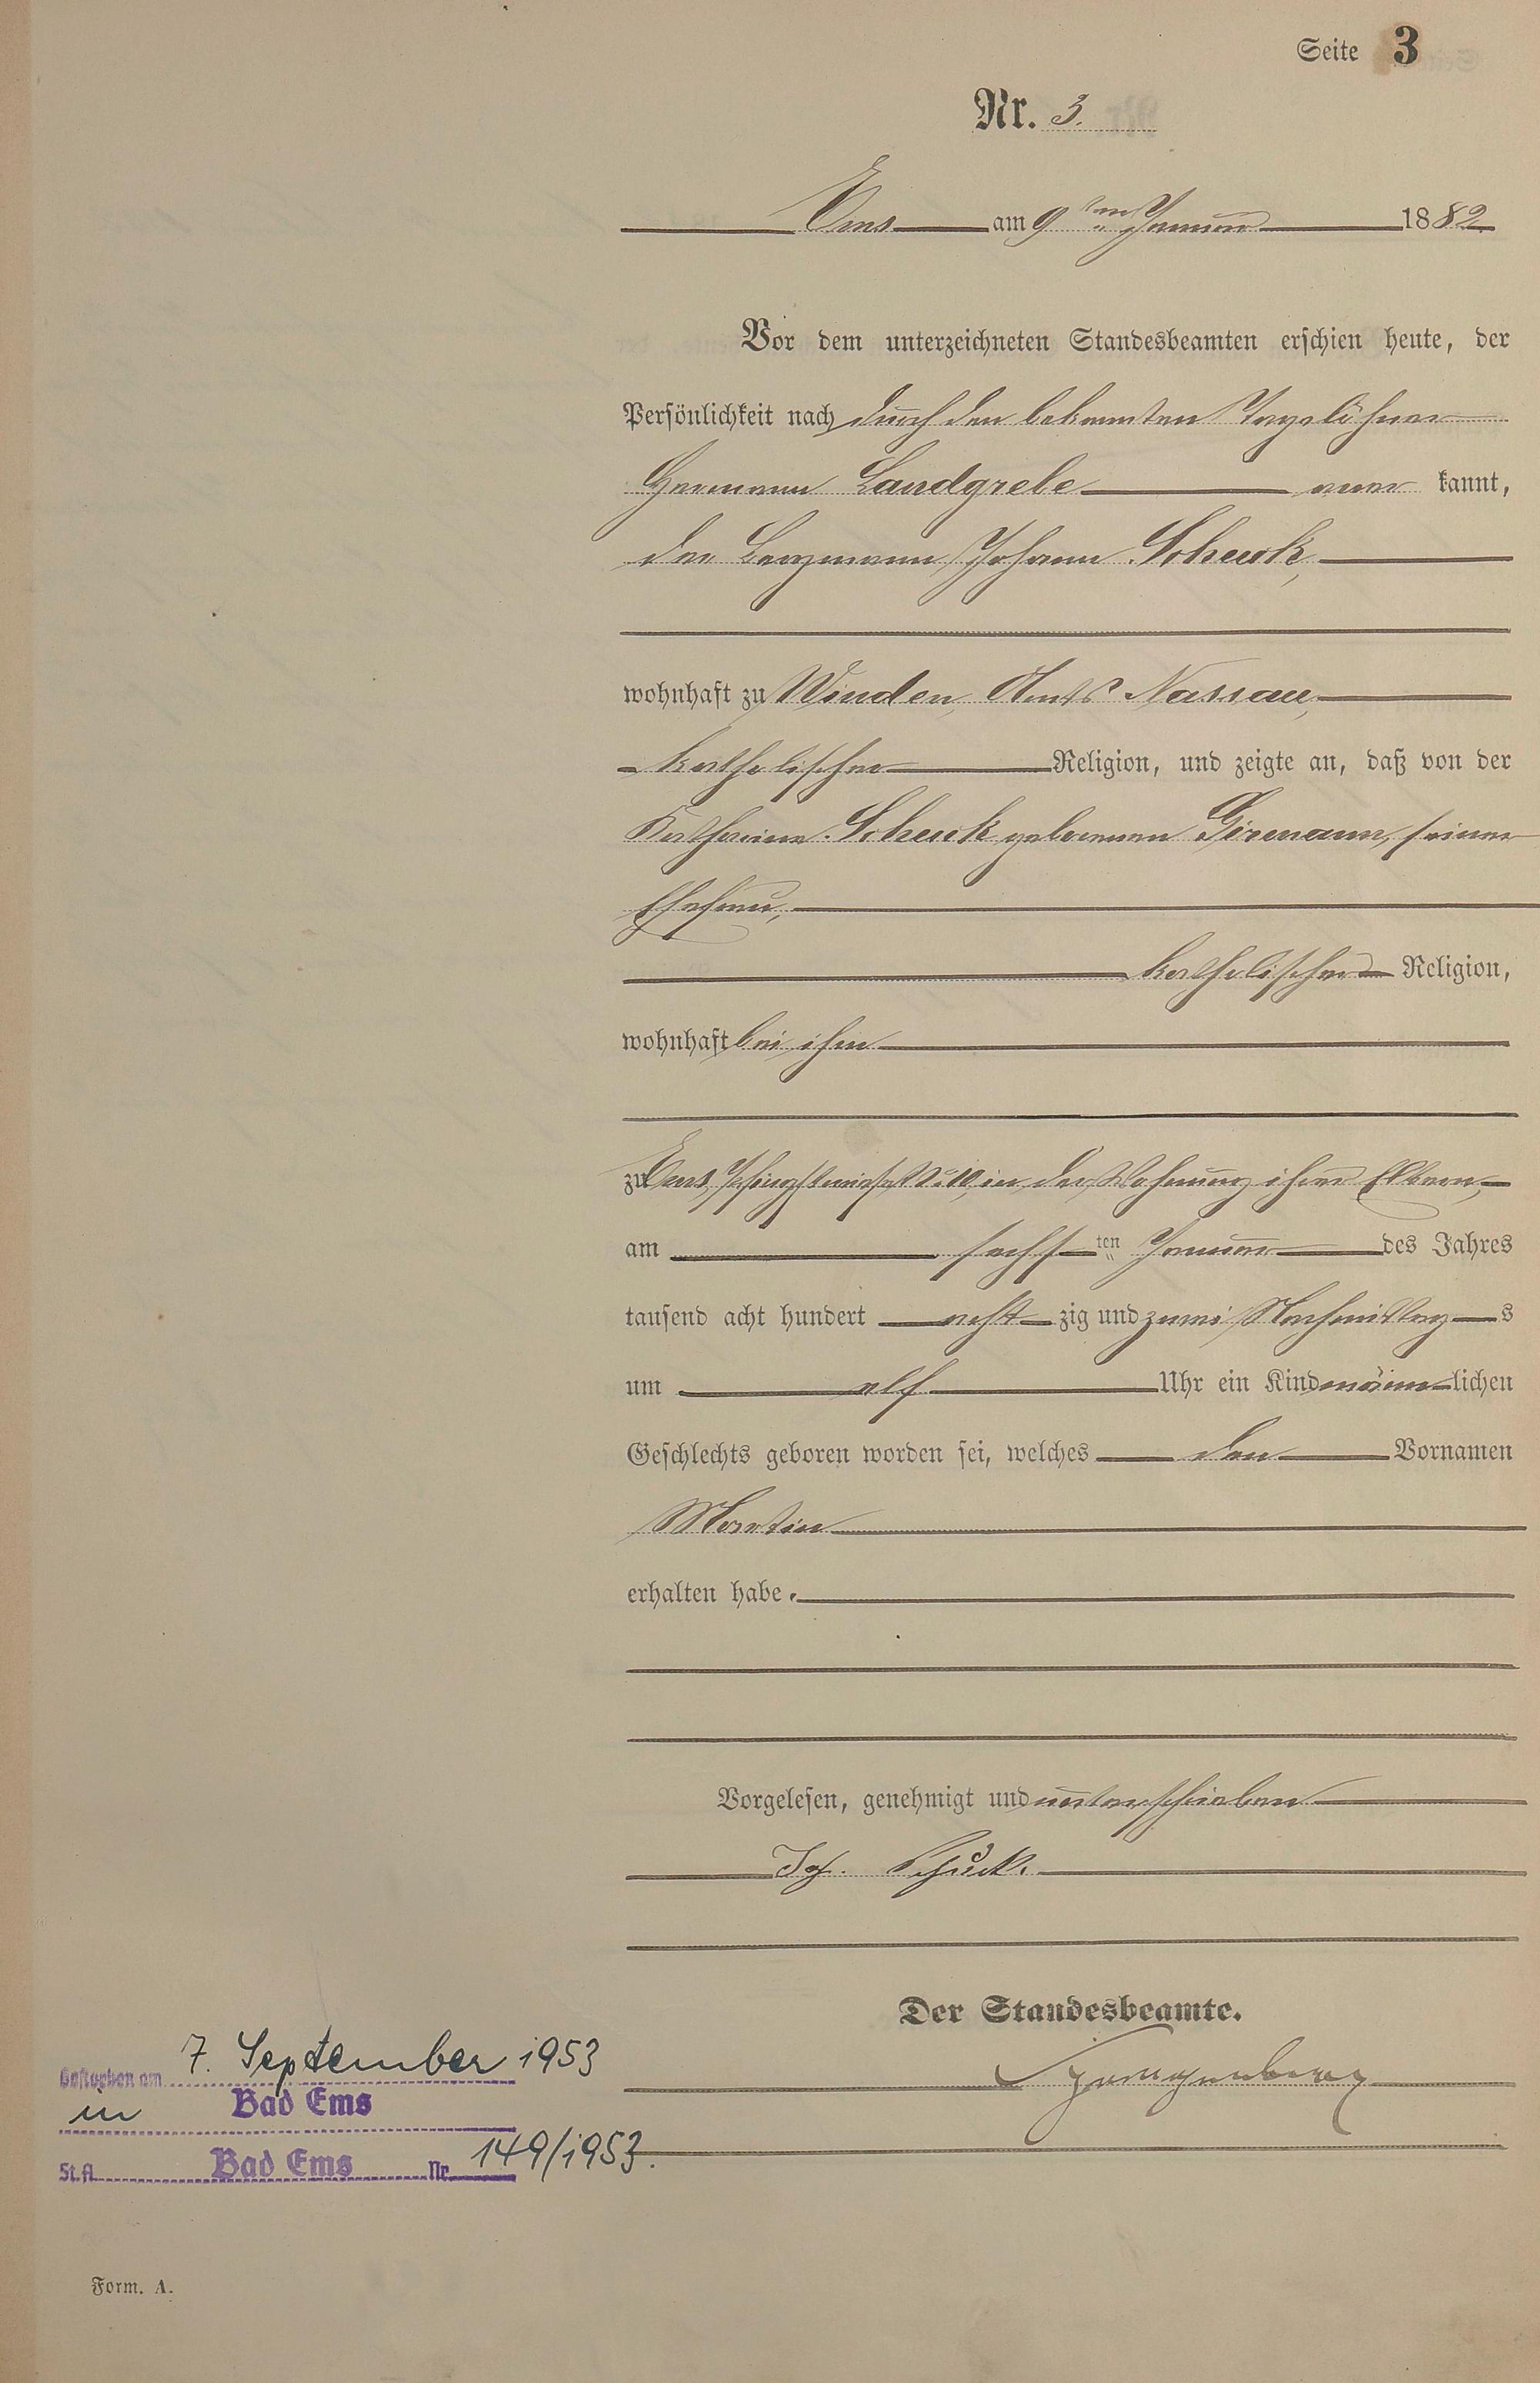 Seite 3
Nr. 3.
Ems am 9ten Januar 1882
Vor dem unterzeichneten Standesbeamten erschien heute, der
Persönlichkeit nach durch den bekannten Tagelöhner
Hermann Landgrebe aner kannt,
der Bergmann Johann Scheuk,
wohnhaft zu Winden, Amts Nassau,
katholischer Religion, und zeigte an, daß von der
Katharina Scheuk geborenen Girmann, seiner
Ehefrau,
katholischer Religion,
wohnhaft bei ihm
zu Ems, Pfingstwiese No 10, in der Wohnung ihrer Eltern,
am sechsten Januar des Jahres
tausend acht hundert acht zig und zwei Nachmittag s
um elf Uhr ein Kind männ lichen
Geschlechts geboren worden sei, welches den Vornamen
Martin
erhalten habe.
Vorgelesen, genehmigt und unterschrieben
Joh. Schuck.
Der Standesbeamte.
7. September 1953
Gestorben am
in Bad Ems
St.A. Bad Ems Nr. 149/1953.
Form. A.